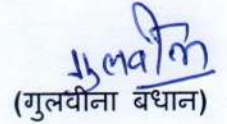 गुलवीना
(गुलवीना बधान)